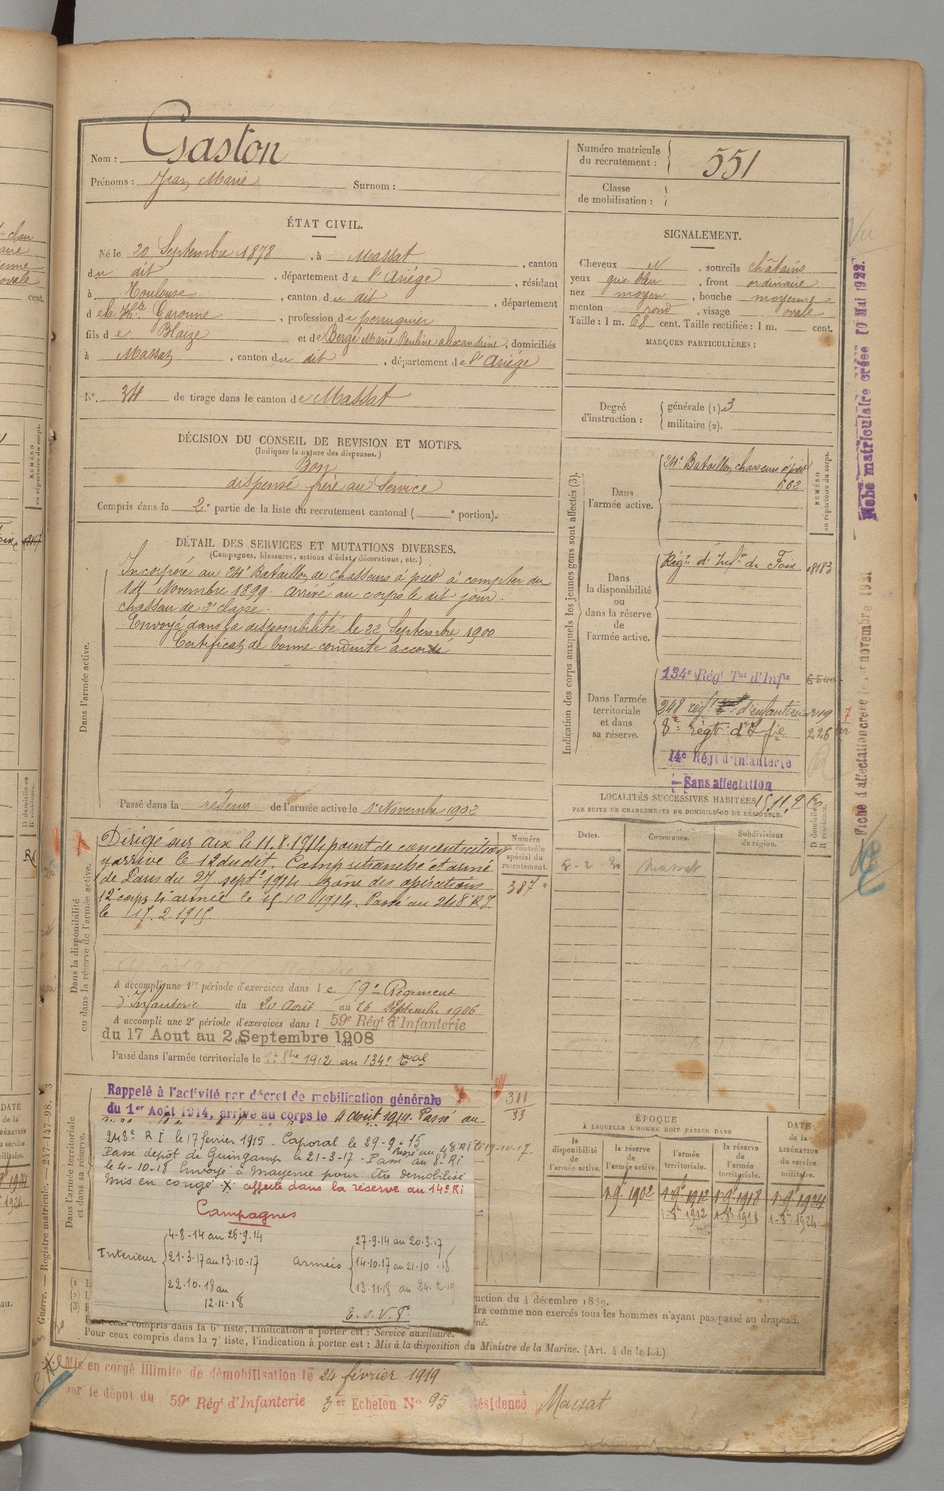 Nom : Gaston
Prénoms : Jean Marie Surnom :
Numéro matricule du recrutement : 551
Classe de mobilisation :
ÉTAT CIVIL.
Né le 20 Septembre 1878, à Massat, canton
du dit, département de l'Ariège, résidant
à Toulouse, canton du dit, département
de la Hte Garonne, profession de perruquier
fils de Blaize et de Bergé Marie Pauline alexandrine, domiciliés
à Massat, canton du dit, département de l'Ariège
N° 34 de tirage dans le canton de Massat
DÉCISION DU CONSEIL DE REVISION ET MOTIFS.
(Indiquer la nature des dispenses.)
Bon
dispensé frère au Service
Compris dans la 2e partie de la liste du recrutement cantonal ( e portion).
DÉTAIL DES SERVICES ET MUTATIONS DIVERSES.
(Campagnes, blessures, actions d'éclat, décorations, etc.)
Dans l'armée active.
Incorporé au 24e Bataillon de Chasseurs à pied à compter du
14 Novembre 1899. Arrivé au corps le dit jour.
chasseur de 2e classe.
Envoyé dans la disponibilité le 22 Septembre 1900
Certificat de bonne conduite accordé
Passé dans la réserve de l'armée active le 1er Novembre 1902
Dans la disponibilité ou dans la réserve de l'armée active.
Dirigé sur Aix le 11.8.1914 point de concentration
y arrivé le 12 du dit. Camp retranché et armé
de Paris du 27 sept. 1914 zône des opérations
12e corps 4e armée le 15 10 1914. Passé au 248e RI
le 17.2.1915
Numéro au contrôle spécial du recrutement.
387
A accompli une 1re période d'exercices dans le 59e Régiment
d'Infanterie du 20 Août au 16 Septembre 1906
A accompli une 2e période d'exercices dans l 59e Régt d'Infanterie
du 17 Aout au 2 Septembre 1908
Passé dans l'armée territoriale le 1er 8bre 1912 au 134e Tal
Dans l'armée territoriale et dans sa réserve.
Rappelé à l'activité par décret de mobilisation générale
du 1er Août 1914, arrivé au corps le 4 août 1914. Passé au
311
33
248e R I le 17 février 1915 - Caporal le 29-9-15
Passé dépôt de Guingamp le 21-3-17 - Passé au 8e RI
le 4-10-18 Envoyé à Mayence pour être démobilisé
mis en congé affecté dans la réserve au 14e RI
Campagnes
Intérieur
4-8-14 au 26-9-14
21-3-17 au 13-10-17
22-10-18 au
12-11-18
Armées
27-9-14 au 20-3-17
14-10-17 au 21-10-18
13-11-18 au 24-2-19
T.S.V.P.
SIGNALEMENT.
Cheveux N, sourcils châtains
yeux gris bleu, front ordinaire
nez moyen, bouche moyenne
menton rond, visage ovale
Taille : 1 m. 68 cent. Taille rectifiée : 1 m. cent.
MARQUES PARTICULIÈRES :
Degré d'instruction : générale (1) 3
militaire (2).
Indication des corps auxquels les jeunes gens sont affectés (3).
NUMÉRO au répertoire du corps.
Dans l'armée active.
24e Bataillon chasseurs à pied
Dans la disponibilité ou dans la réserve de l'armée active.
Régt d'Infie de Foix
Dans l'armée territoriale et dans sa réserve.
134e Régt Tal d'Infie
248 régt d'infanterie
8e Régt d'Ifie
226
14e Régt d'Infanterie
Sans affectation
LOCALITÉS SUCCESSIVES HABITÉES
PAR SUITE DE CHANGEMENTS DE DOMICILE OU DE RÉSIDENCE.
Dates. Communes. Subdivisions de région. D domicile ou R résidence.
Massat
ÉPOQUE
A LAQUELLE L'HOMME DOIT PASSER DANS
la disponibilité de l'armée active. la réserve de l'armée active. l'armée territoriale. la réserve de l'armée territoriale. DATE de la LIBÉRATION du service militaire.
1-9-1902 1-9-1912 1-9-1918 1-9-1924
Fiche matriculaire créée 10 Mai 1922.
ction du 4 décembre 1889.
dra comme non exercés tous les hommes n'ayant pas passé au drapeau.
Pour ceux compris dans la 6e liste, l'indication à porter est : Service auxiliaire.
Pour ceux compris dans la 7e liste, l'indication à porter est : Mis à la disposition du Ministre de la Marine. (Art. 4 de la loi.)
Mis en congé illimité de démobilisation le 24 février 1919
par le dépôt du 59e Régt d'Infanterie 3er Echelon No 95 Résidence Massat